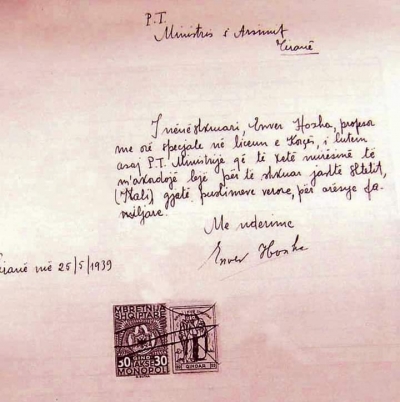 P.T.
Ministris i Arsimit
Tiranë
I nënëshkruari, Enver Hoxha, profesor
me orë speciale në liceun e Korçës, i lutem
asaj P.T. Ministrije që të ketë mirësinë të
m'akordojë lejë për të shkuar jashtë Shtetit,
(Itali) gjatë pushimeve verore, për arësye fa-
miljare.
Me nderime
Enver Hoxha
Tiranë më 25/5/1939
MBRETNIA
SHQIPTARE
50 QIND 30
MONOPOL
QINDAR